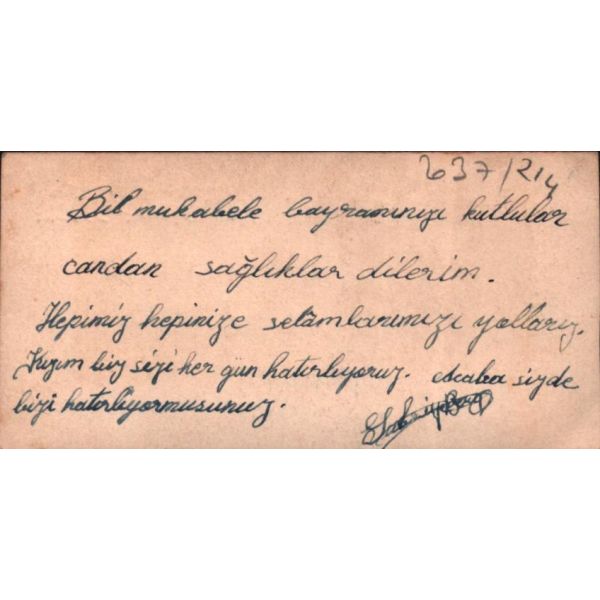 637/214
Bil mukabele bayramınızı kutlular
candan sağlıklar dilerim.
Hepimiz hepinize selâmlarımızı yollarız.
Kızım biz sizi her gün hatırlıyoruz. Acaba sizde
bizi hatırlıyormusunuz.